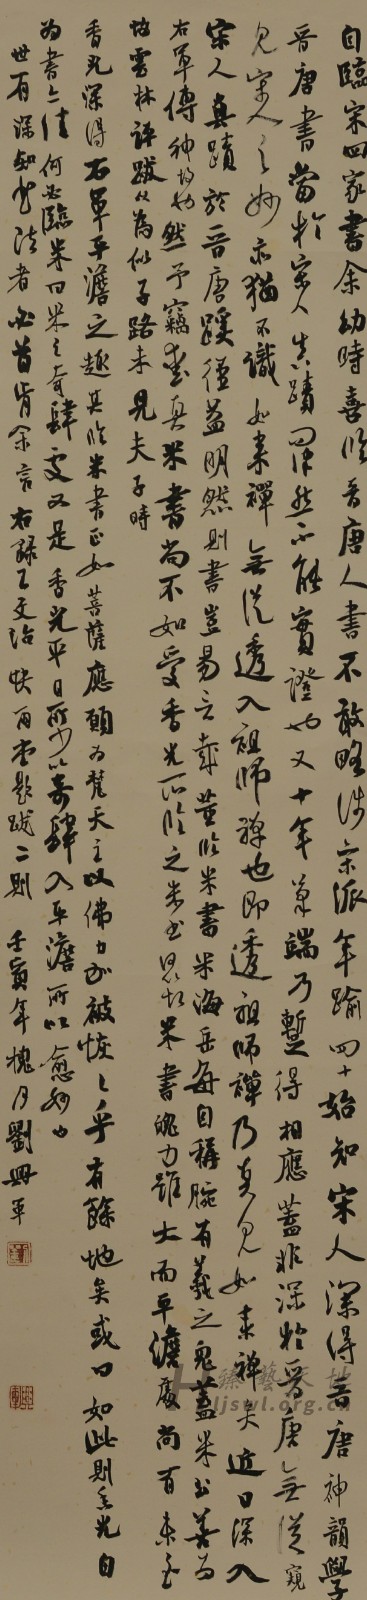 自臨宋四家書余幼時喜臨晉唐人書不敢略涉宋派年踰四十始知宋人深得晉唐神韻學
晉唐書當於宋人真蹟問津然不能實證也又十年筆端乃暫得相應蓋非深於晉唐無從窺
見宋人之妙亦猶不識如來禪無從透入祖師禪也即透祖師禪乃真見如來禪矣近日深入
宋人真蹟於晉唐蹊徑益明然則書豈易言哉董臨米書米海岳每自稱腕有羲之鬼蓋米書善為
右軍傳神故也然予竊愛真米書尚不如受香光所臨之米書思故米書魄力雖大而平澹處尚有未至
故雲林評跋以為似子路未見夫子時
香光深得右軍平澹之趣其臨米書正如菩薩應願為梵天主以佛力加被恢恢乎有餘地矣或曰如此則香光自
為書亦佳何必臨米曰米之奇肆處又是香光平日所少以奇肆入平澹所以愈妙也
世有深知書法者必首肯余言右錄王文治快雨堂題跋二則 壬寅年槐月劉興軍
臻藝天地
ljswl.org.cn